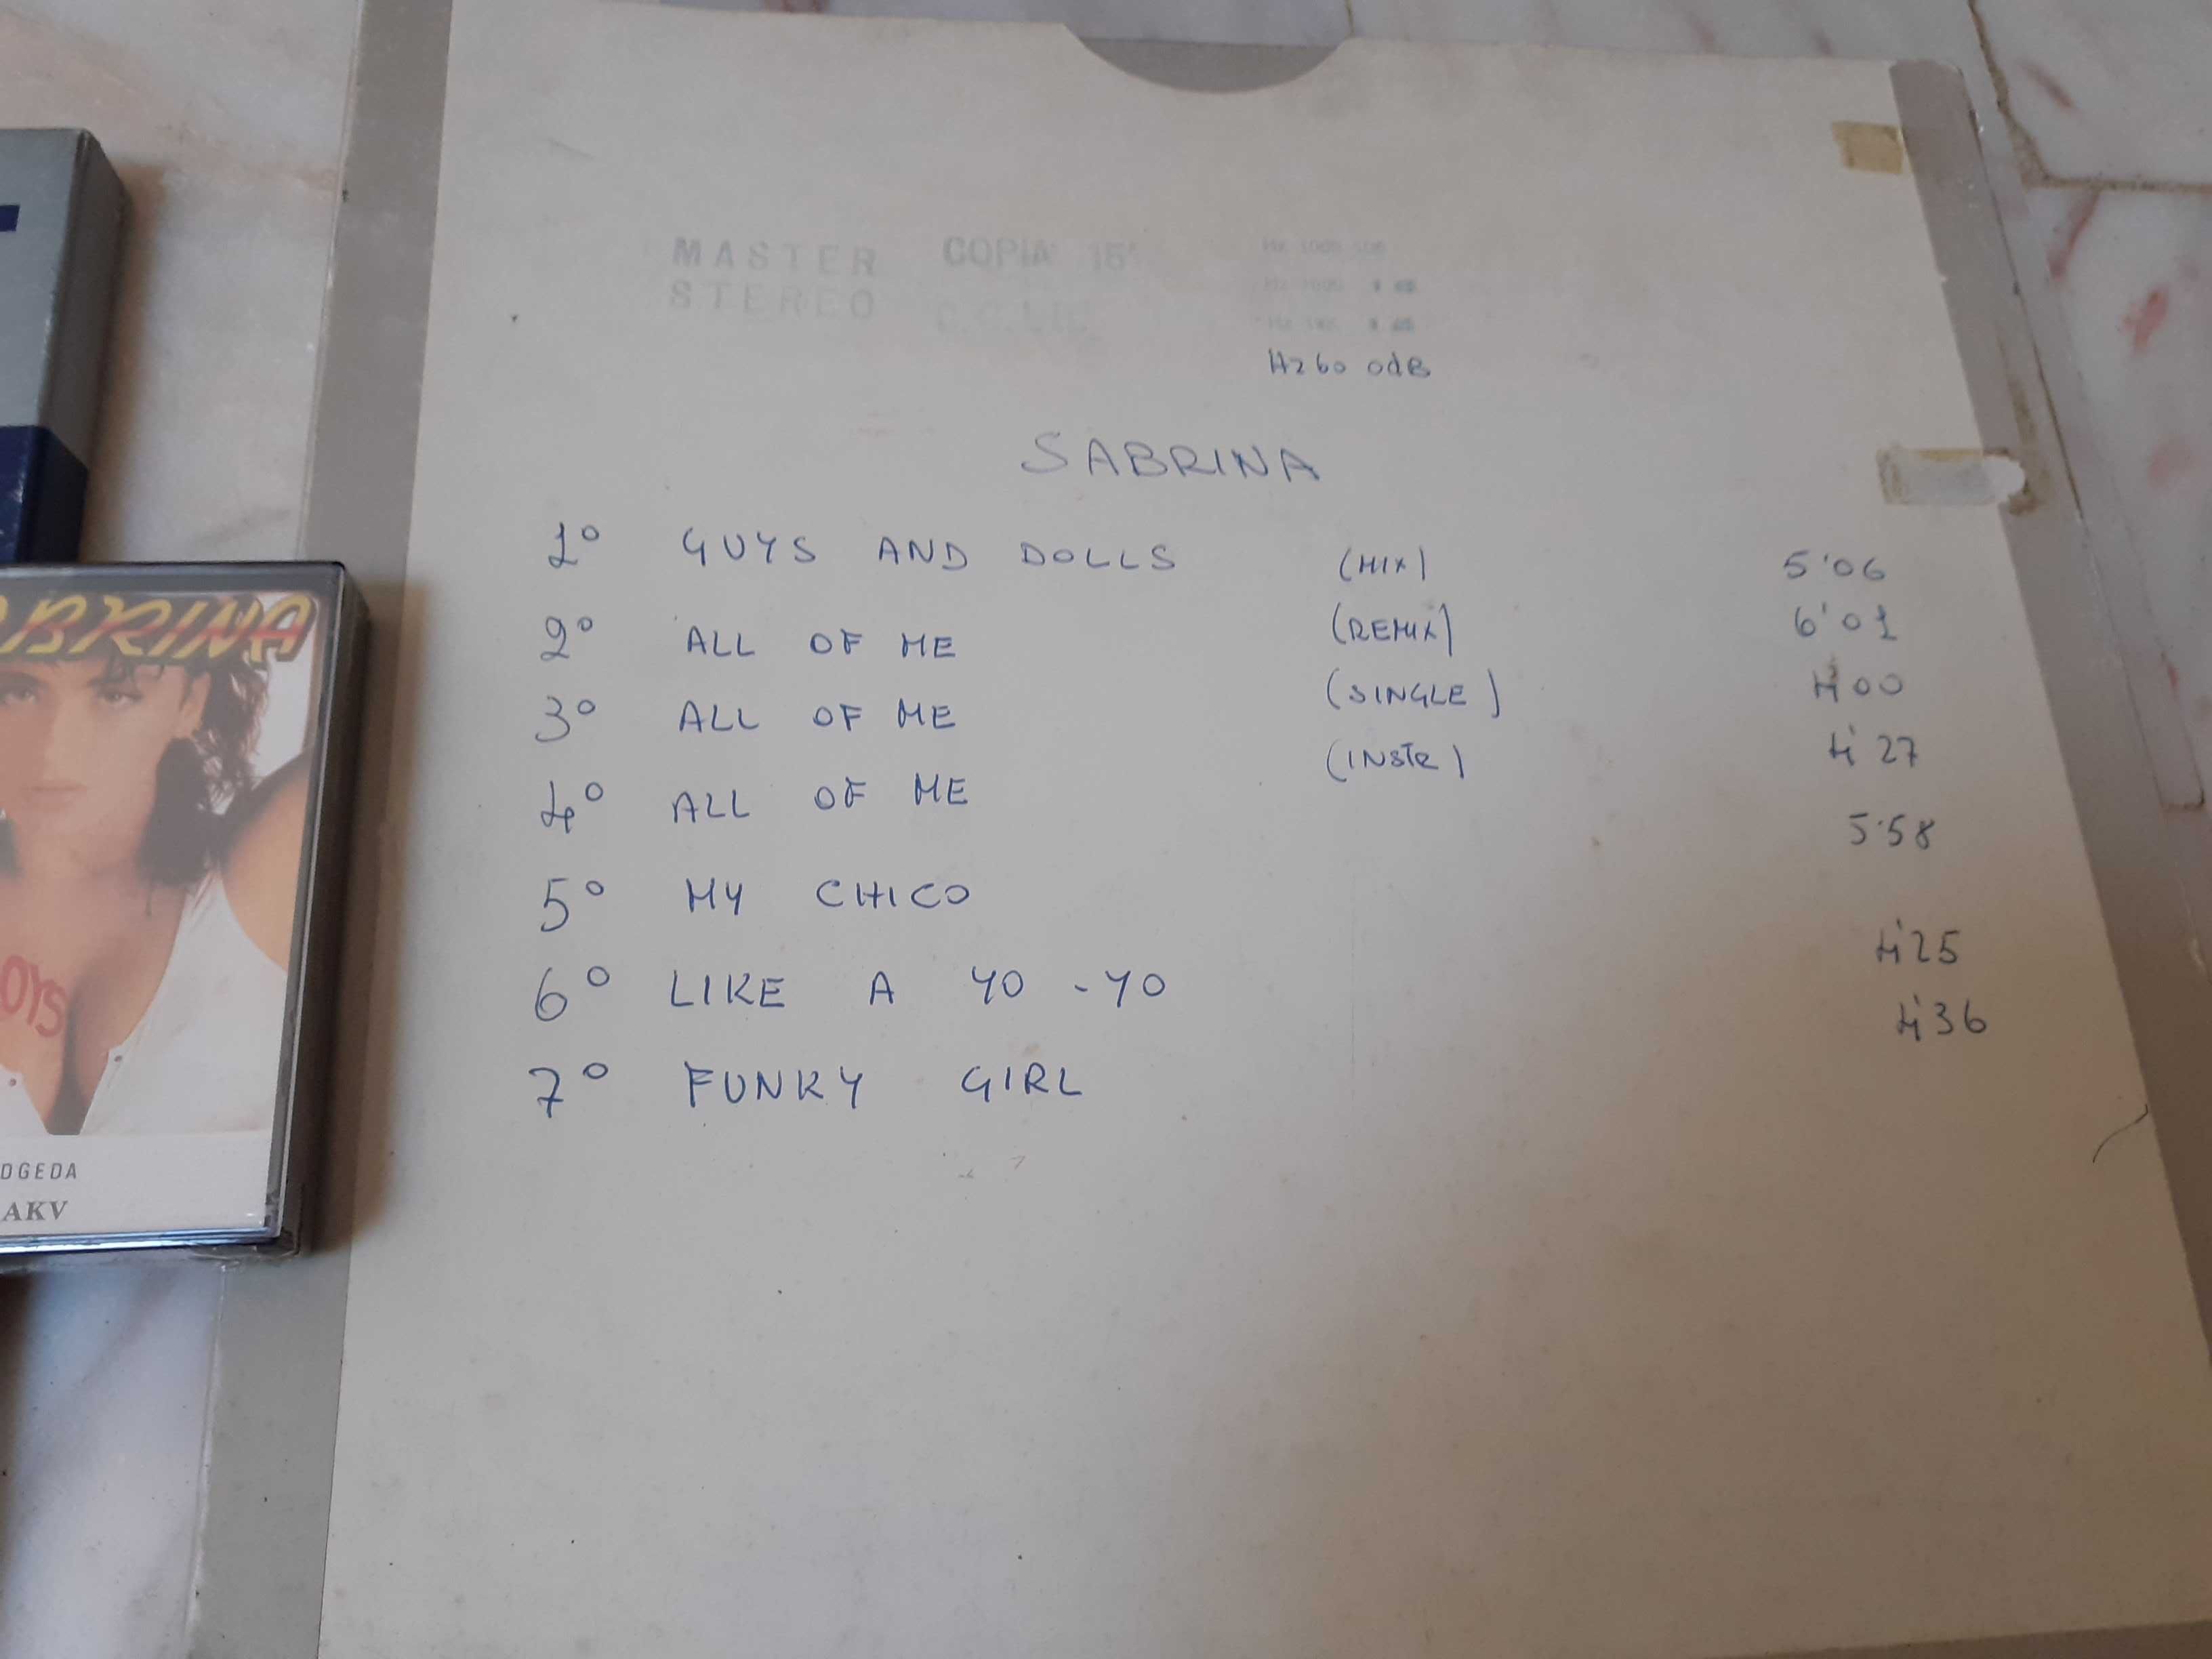 MASTER COPIA 15"
STEREO
Hz 60 0dB
SABRINA
1° GUYS AND DOLLS (MIX) 5'06
2° ALL OF ME (REMIX) 6'01
3° ALL OF ME (SINGLE) 4'00
4° ALL OF ME (INSTR) 4'27
5° MY CHICO 5'58
6° LIKE A YO-YO 4'25
7° FUNKY GIRL 4'36
BRINA
OYS
DGEDA
AKV